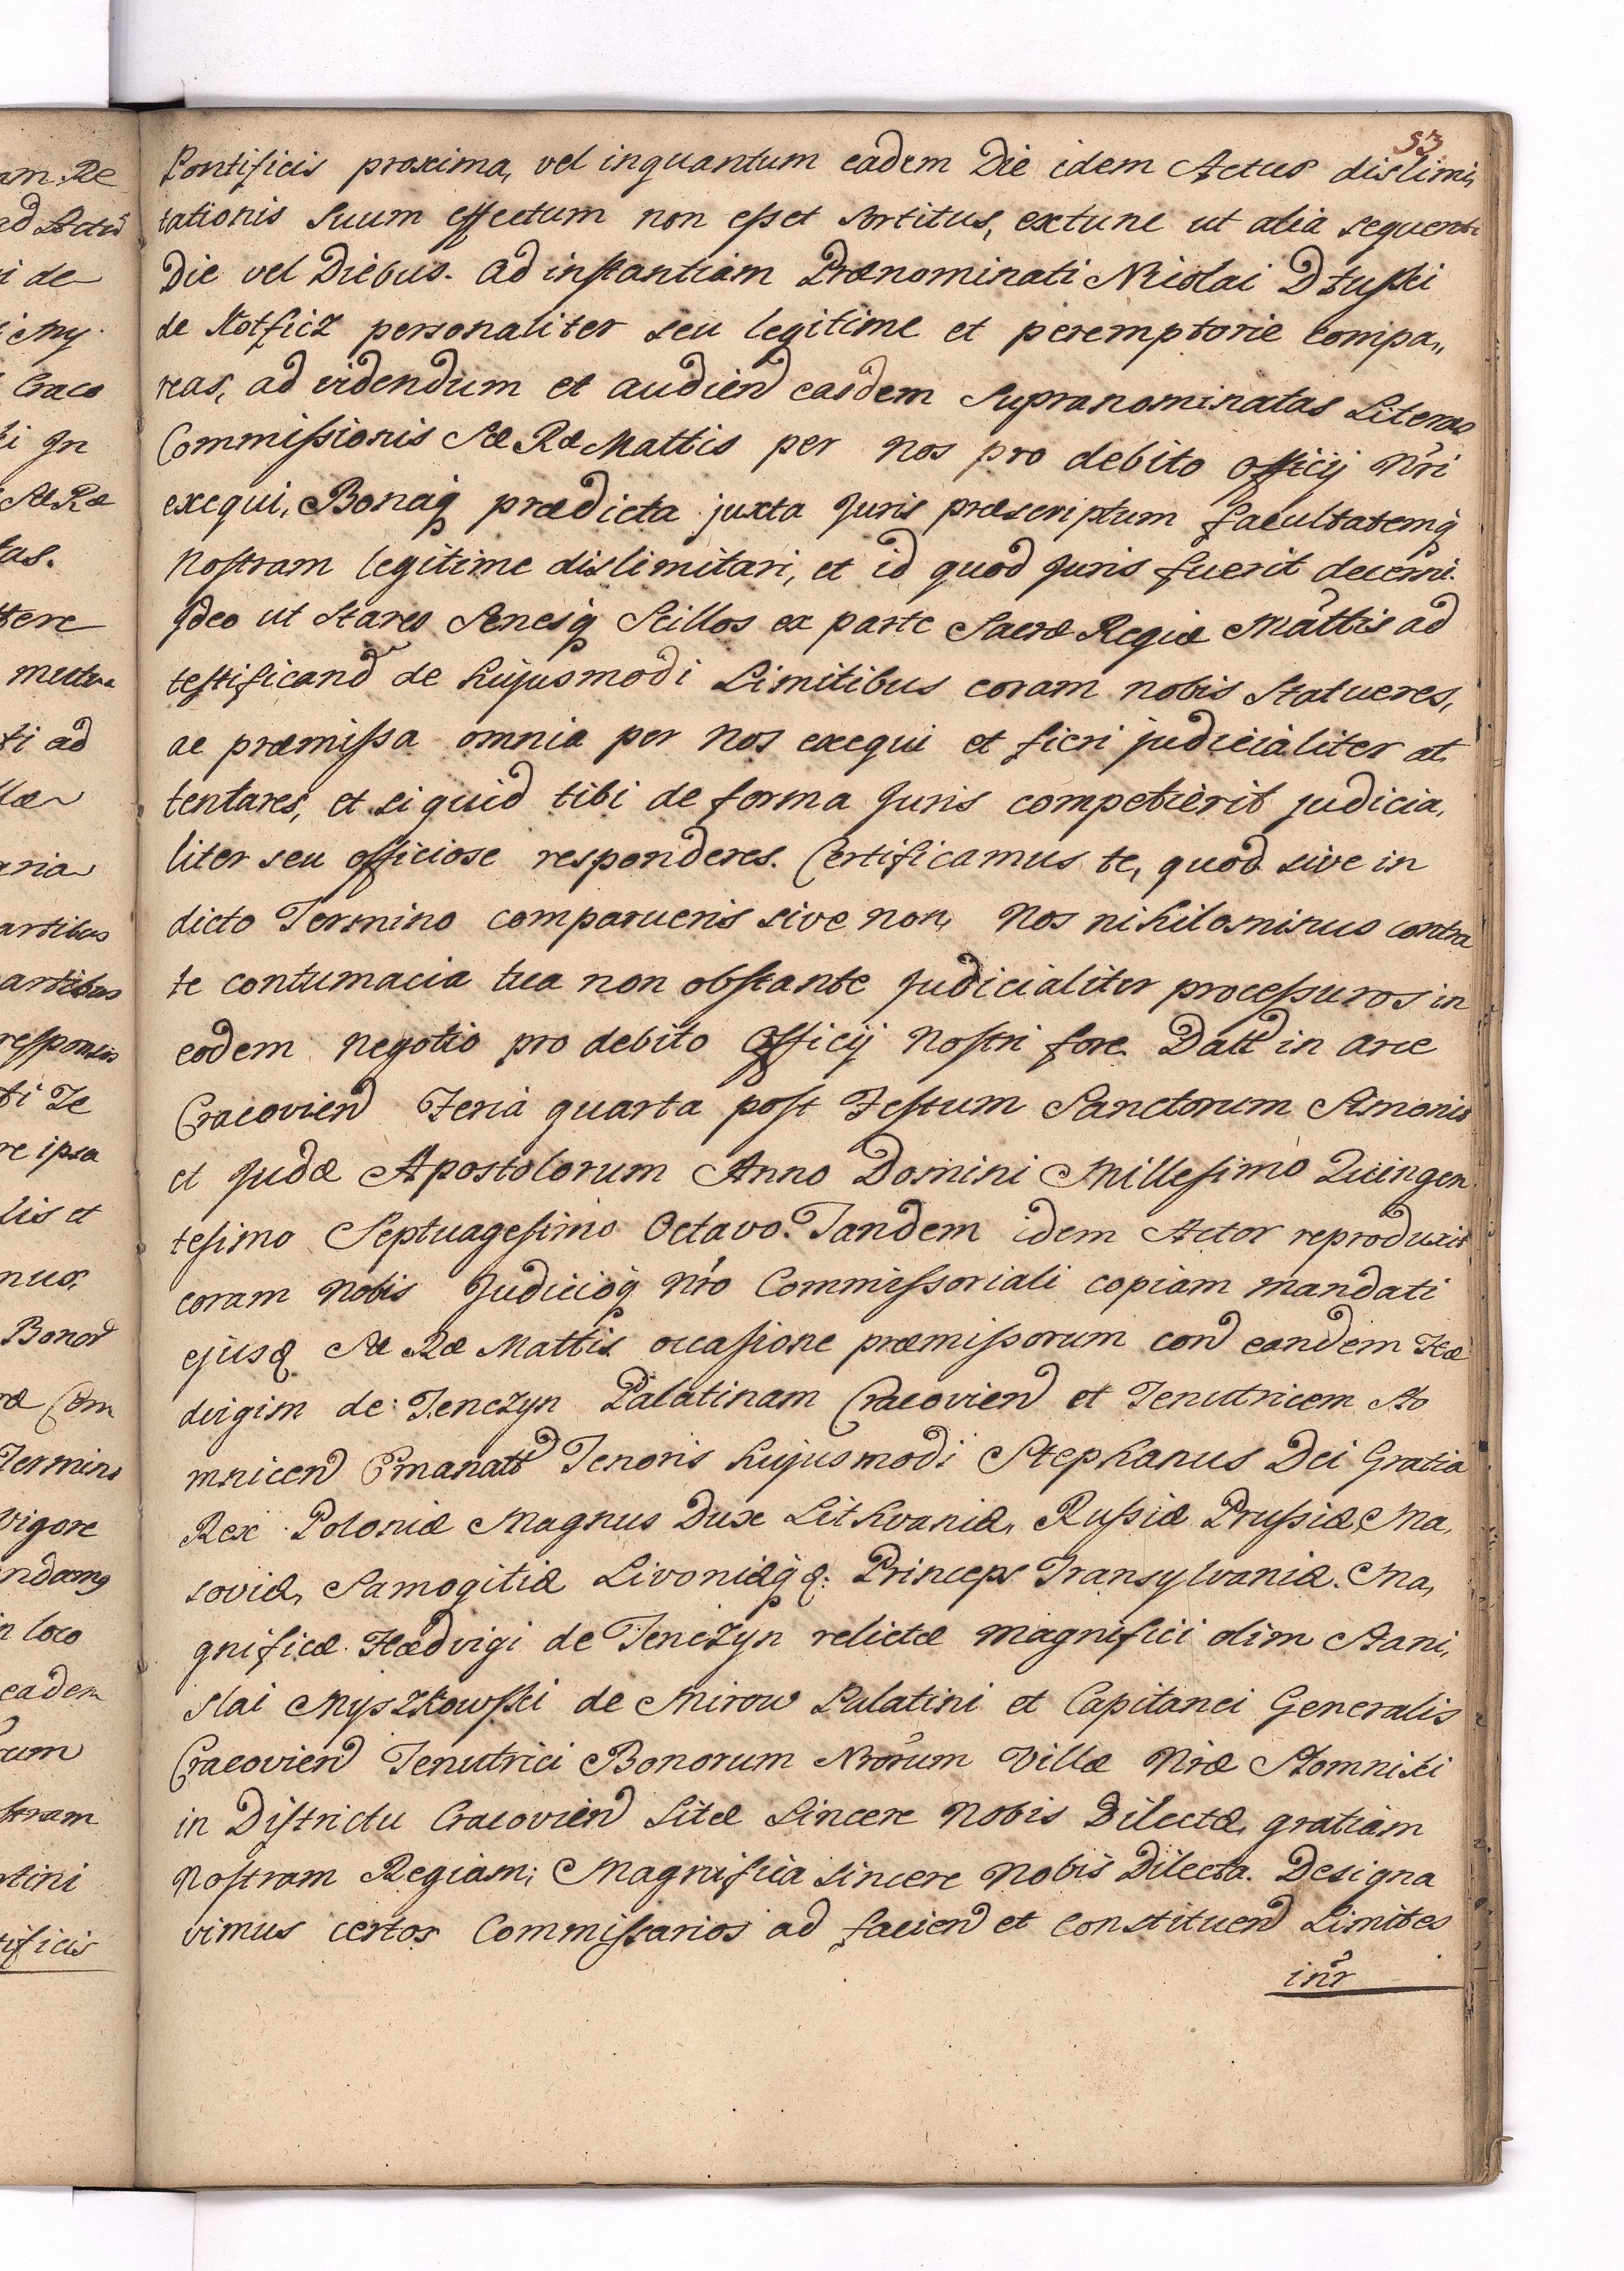 53.
Pontificis proxima, vel inquantum eadem Die idem Actus dislimi,
tationis Suum effectum non esset Sortitus, extunc ut alia sequenti
Die vel Diebus. ad instantiam Prænominati Nicolai Dłuski
de Kotficz personaliter seu legitime et peremptorie compa,,
reas, ad videndum et audiend easdem Supranominatas Literas
Commissionis Sæ Ræ Mattis per nos pro debito officij nri
exequi, Bonaq prædicta juxta Juris præscriptum facultatemq
nostram legitime dislimitari, et id quod Juris fuerit decerni.
Ideo ut Stares Senesq Scillos ex parte Sacræ Regiæ Mattis ad
testificand de hujusmodi Limitibus coram nobis Statueres,
ac præmissa omnia per nos exequi et fieri judicialiter at
tentares, et si quid tibi de forma Juris competierit judicia,
liter seu officiose responderes. Certificamus te, quod sive in
dicto Termino comparueris sive non, nos nihilominus contra
te contumacia tua non obstante Judicialiter processuros in
eodem negotio pro debito officij nostri fore. Datt in arce
Cracovien Feria quarta post Festum Sanctorum Simonis
et Judæ Apostolorum Anno Domini Millesimo Quingen
tesimo Septuagesimo Octavo. Tandem idem Actor reproduxit
coram nobis Judicioq nro Commissoriali copiam mandati
ejusq Sæ Ræ Mattis occasione præmissorum con eandem Hæ
dvigim de Tenczyn Palatinam Cracovien et Tenutricem Sto
mnicen Emanatt Tenoris hujusmodi Stephanus Dei Gratia
Rex Poloniæ Magnus Dux Lithvaniæ, Russiæ Prussiæ, Ma,
soviæ, Samogitiæ Livoniæq &: Princeps Transylvaniæ. Ma,
gnificæ Hædvigi de Tenczyn relictæ magnifici olim Stani,
slai Myszkowski de Mirow Palatini et Capitanei Generalis
Cracovien Tenutrici Bonorum Nrorum Villæ nræ Stomniki
in Districtu Cracovien Sitæ Sincere Nobis Dilectæ, gratiam
nostram Regiam; Magnifica sincere nobis Dilecta. Designa
vimus certos Commissarios ad facien et Constituen Limites
inr